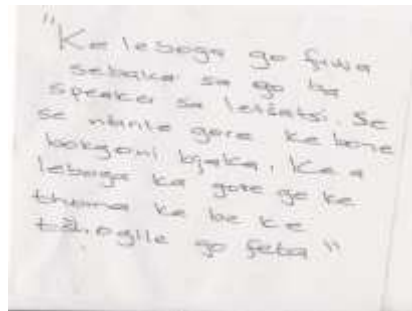 "Ke leboga go fiwa
sebaka sa go ba
speaker sa letšatši. Se
se ntirile gore ke bone
bokgoni bjaka. Ke a
leboga ka gore ge ke
thoma ke be ke
tšhogile go feta"